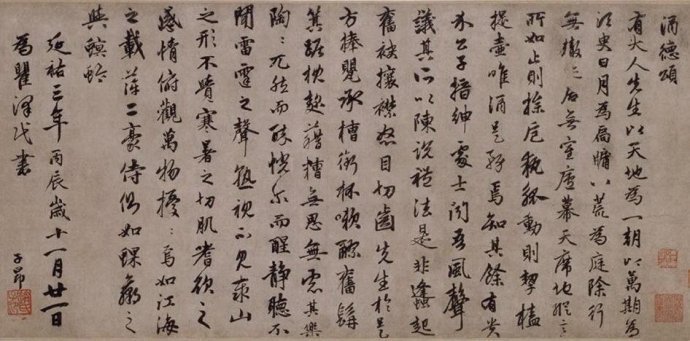 酒德頌
有大人先生以天地為一朝以萬期為
須臾日月為扃牖八荒為庭除行
無轍跡居無室廬幕天席地縱意
所如止則操卮執觚動則挈榼
提壺唯酒是務焉知其餘有貴
介公子搢紳處士聞吾風聲
議其所以陳說禮法是非蠭起
奮袂攘襟怒目切齒先生於是
方捧甖承槽銜杯漱醪奮髯
箕踞枕麴藉糟無思無慮其樂
陶〻兀然而醉恍尔而醒靜聽不
聞雷霆之聲熟視不見泰山
之形不覺寒暑之切肌嗜欲之
感情俯觀萬物擾〻焉如江海
之載萍二豪侍側如蜾蠃之
與螟蛉
延祐三年丙辰歲十一月廿一日
為瞿澤民書
子昂